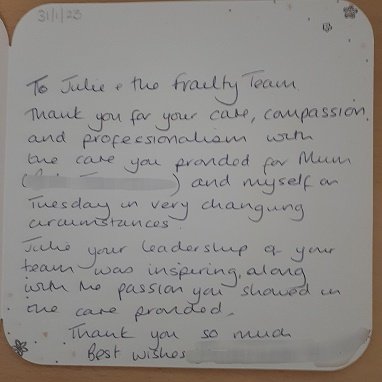 31/1/23
To Julie + the Frailty Team.
Thank you for your care, compassion
and professionalism with
the care you provided for Mum
( ) and myself on
Tuesday in very changing
circumstances.
Julie your leadership of your
team was inspiring, along
with the passion you showed in
the care provided.
Thank you so much
Best wishes